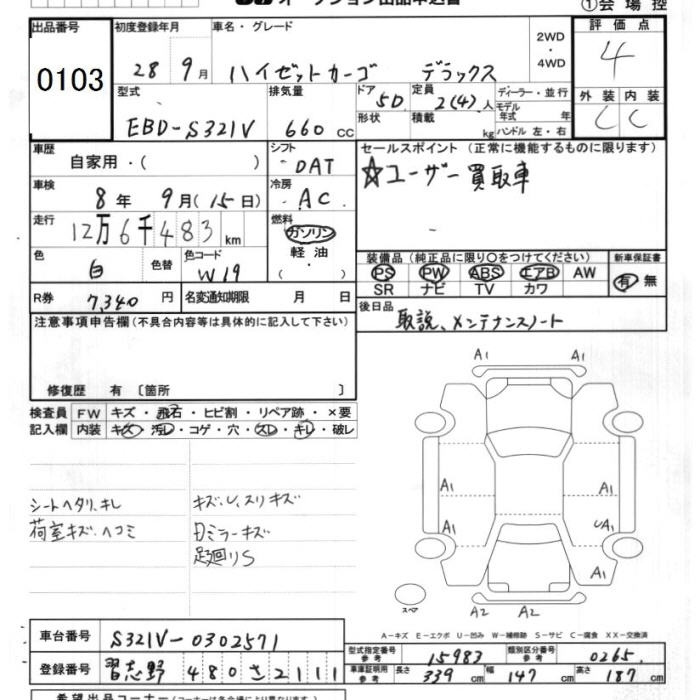 オークション出品申込書
①会場控
出品番号 0103
初度登録年月 28年 9月
車名・グレード ハイゼットカーゴ デラックス
2WD・4WD
評価点 4
型式 EBD-S321V
排気量 660 cc
ドア 5D 形状
定員 2(4)人 積載 kg
ディーラー・並行
モデル年式 年
ハンドル 左・右
外装 C 内装 C
車歴 自家用・( )
シフト DAT
セールスポイント (正常に機能するものに限ります)
☆ユーザー買取車
車検 8年 9月(15日)
冷房 AC
走行 12万6千483km
燃料 ガソリン 軽油 ( )
色 白 色替
色コード W19
装備品 (純正品に限り○をつけてください)
PS PW ABS エアB AW
SR ナビ TV カワ
新車保証書 有 無
R券 7,340円
名変通知期限 月 日
後日品 取説、メンテナンスノート
注意事項申告欄 (不具合内容等は具体的に記入して下さい)
修復歴 有 〔箇所 〕
検査員記入欄
FW キズ・飛石・ヒビ割・リペア跡・×要
内装 キズ・汚レ・コゲ・穴・スレ・キレ・破レ
シートヘタリ、キレ
荷室キズ、ヘコミ
キズ、U、スリキズ
日ミラーキズ
足廻りS
A1 A1
A1 A1
A1 UA1
A1
A2 A2
スペア
A-キズ E-エクボ U-凹み W-補修跡 S-サビ C-腐食 XX-交換済
車台番号 S321V-0302571
型式指定番号 参考 15983
類別区分番号 参考 0265
登録番号 習志野 480 さ 2111
車庫証明用 参考 長さ 339 cm 幅 147 cm 高さ 187 cm
希望出品コーナー